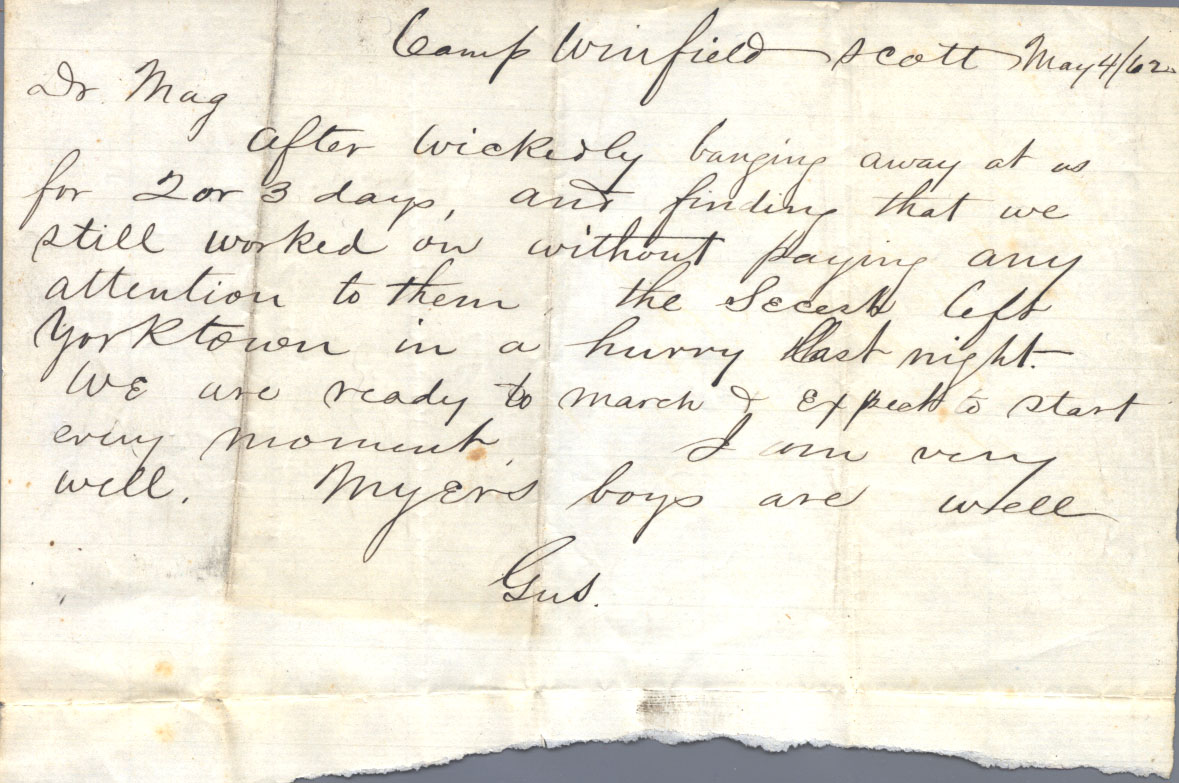 Camp Winfield Scott May 4/62
Dr. Mag
After wickedly banging away at us
for 2 or 3 days, and finding that we
still worked on without paying any
attention to them, the Secesh left
Yorktown in a hurry last night.
We are ready to march & expect to start
every moment. I am very
well. Myers boys are well
Gus.